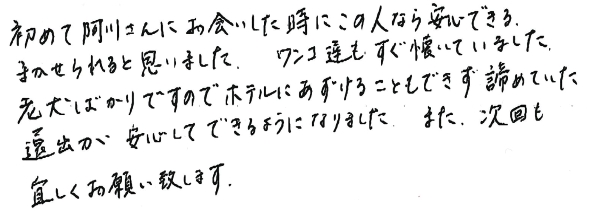 初めて阿川さんにお会いした時にこの人なら安心できる.
まかせられると思いました. ワンコ達もすぐ懐いていました.
老犬ばかりですのでホテルにあずけることもできず諦めていた
遠出が安心してできるようになりました. また、次回も
宜しくお願い致します.